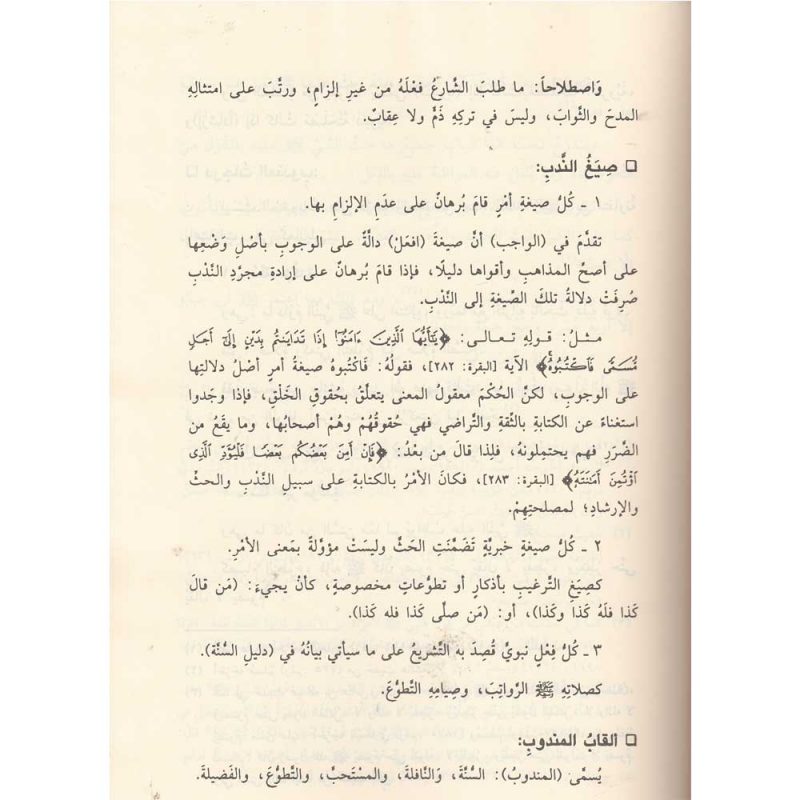 وَاصطلاحاً: ما طلبَ الشَّارعُ فعْلَهُ من غيرِ إلزامٍ، ورتَّبَ على امتثالِهِ
المدحَ والثَّوابَ، وليسَ في تركِهِ ذَمٌّ ولا عِقابٌ.
❑ صِيَغُ النَّدبِ:
١ ـ كُلُّ صيغةِ أمْرٍ قامَ بُرهانٌ على عدَمِ الإلزامِ بها.
تقدَّمَ في (الواجب) أنَّ صيغةَ (افعَلْ) دالَّةٌ على الوجوبِ بأصْلِ وَضْعِها
على أصحِّ المذاهبِ وأقواها دليلًا، فإذا قامَ بُرهانٌ على إرادةِ مجرَّدِ النَّدْبِ
صُرِفَتْ دلالةُ تلكَ الصِّيغةِ إلى النَّدْبِ.
مثلُ: قولِهِ تعالى: ﴿يَٰٓأَيُّهَا ٱلَّذِينَ ءَامَنُوٓا۟ إِذَا تَدَايَنتُم بِدَيْنٍ إِلَىٰٓ أَجَلٍ
مُّسَمًّى فَٱكْتُبُوهُ﴾ الآية [البقرة: ٢٨٢]، فقولُهُ: فَاكْتُبوهُ صيغةُ أمرٍ أصْلُ دلالتِها
على الوجوبِ، لكنَّ الحُكْمَ معقولُ المعنى يتعلَّقُ بحُقوقِ الخَلْقِ، فإذا وجَدوا
استغناءً عن الكتابةِ بالثِّقةِ والتَّراضي فهي حُقوقُهُمْ وهُمْ أصحابُها، وما يقعُ من
الضَّررِ فهم يحتمِلونهُ، فلِذا قالَ من بعْدُ: ﴿فَإِنْ أَمِنَ بَعْضُكُم بَعْضًا فَلْيُؤَدِّ ٱلَّذِى
ٱؤْتُمِنَ أَمَٰنَتَهُۥ﴾ [البقرة: ٢٨٣]، فكانَ الأمْرُ بالكتابةِ على سبيلِ النَّدْبِ والحثِّ
والإرشادِ؛ لمصلحتِهِمْ.
٢ ـ كُلُّ صيغةٍ خبريَّةٍ تَضَمَّنَتِ الحَثَّ وليسَتْ مؤوَّلةً بمَعنى الأمْرِ.
كصِيَغِ التَّرغيبِ بأذكارٍ أو تطوُّعاتٍ مخصوصةٍ، كأنْ يجيءَ: (مَن قالَ
كَذا فلَهُ كَذا وكَذا)، أو: (مَن صلَّى كَذا فله كَذا).
٣ ـ كُلُّ فِعْلٍ نبويٍّ قُصِدَ به التَّشريعُ على ما سيأتي بيانُهُ في (دليلِ السُّنَّة).
كصلاتِهِ ﷺ الرَّواتِبَ، وصِيامِهِ التَّطوُّعَ.
❑ ألقابُ المندوبِ:
يُسمَّى (المندوبُ): السُّنَّةَ، والنَّافلةَ، والمستَحبَّ، والتَّطوُّعَ، والفَضيلةَ.